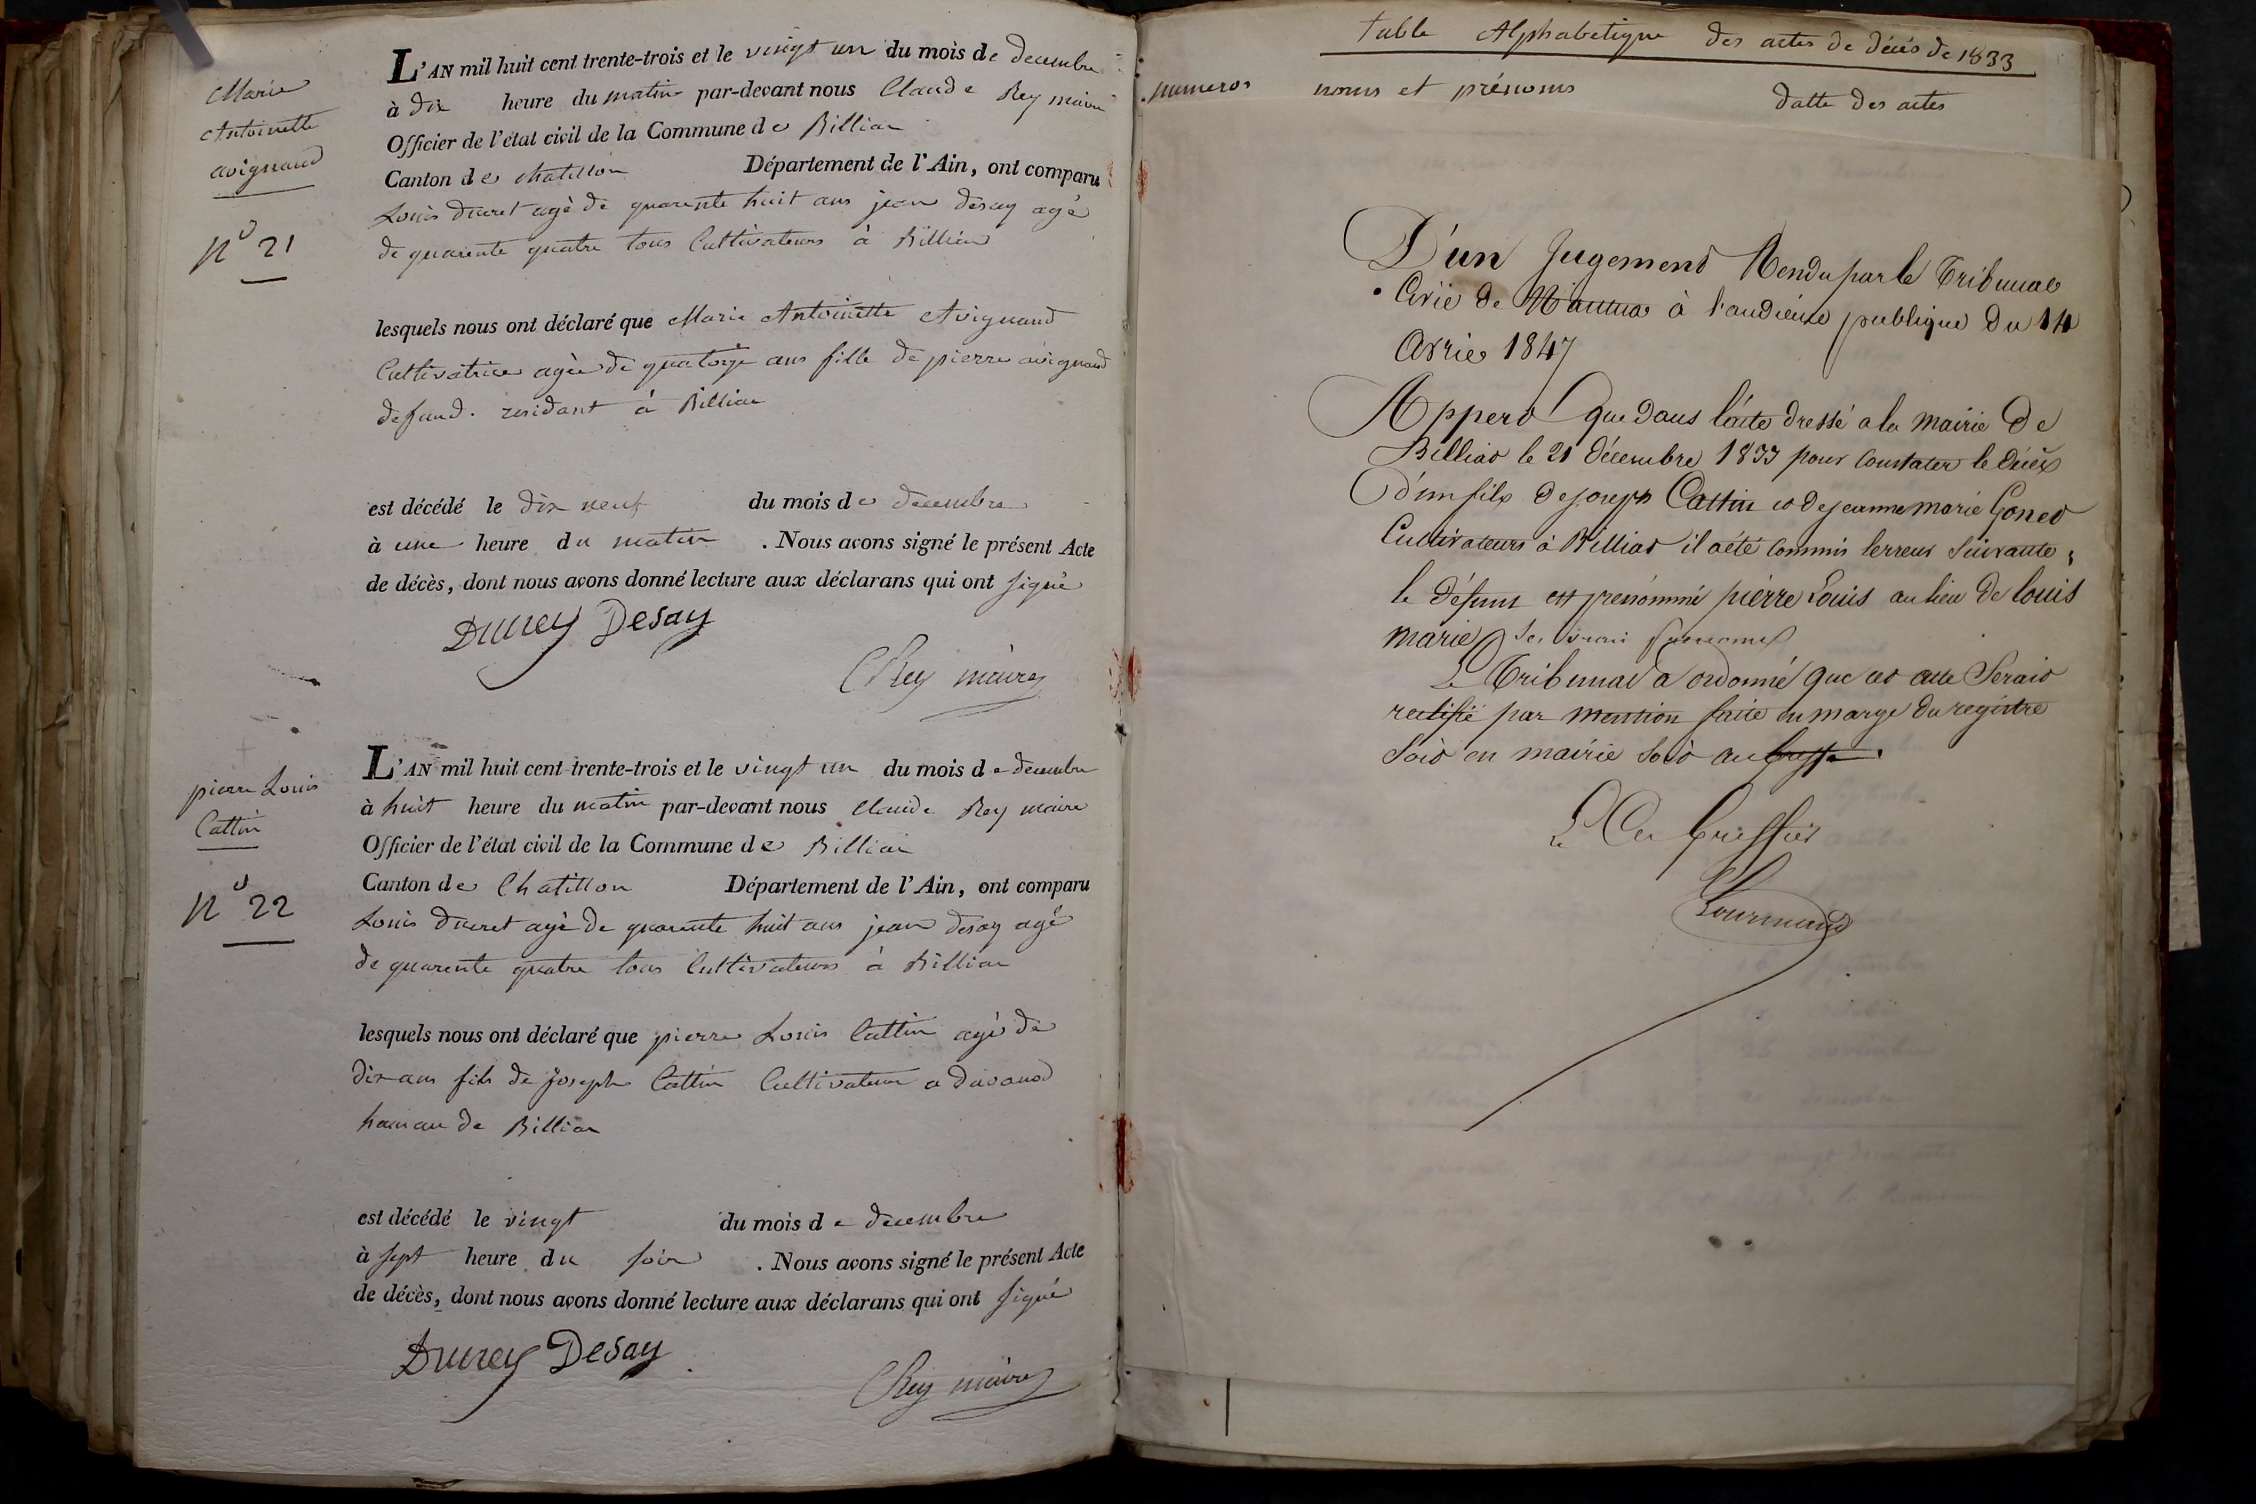 Marie
Antoinette
avignand
No 21
L'AN mil huit cent trente-trois et le vingt un du mois de decembre
à dix heure du matin par-devant nous Claude Rey maire
Officier de l'état civil de la Commune de Billiat
Canton de chatillon Département de l'Ain, ont comparu
Louis ducret agé de quarente huit ans jean desay agé
de quarente quatre tous Cultivateurs à Billiat
lesquels nous ont déclaré que Marie Antoinette Avignand
Cultivatrice agée de quatorze ans fille de pierre avignand
defund. residant à Billiat
est décédé le dix neuf du mois de decembre
à une heure du matin . Nous avons signé le présent Acte
de décès, dont nous avons donné lecture aux déclarans qui ont signé
Ducrey Desay
C Rey maire
pierre Louis
Cattin
No 22
L'AN mil huit cent trente-trois et le vingt un du mois de decembre
à huit heure du matin par-devant nous Claude Rey maire
Officier de l'état civil de la Commune de Billiat
Canton de Chatillon Département de l'Ain, ont comparu
Louis ducret agé de quarente huit ans jean desay agé
de quarente quatre tous Cultivateurs à Billiat
lesquels nous ont déclaré que pierre Louis Cattin agé de
dix ans fils de Joseph Cattin Cultivateur a davanod
hamau de Billiat
est décédé le vingt du mois de decembre
à sept heure du soir . Nous avons signé le présent Acte
de décès, dont nous avons donné lecture aux déclarans qui ont signé
Ducrey Desay
C Rey maire
Table Alphabetique des actes de décés de 1833
numeros noms et prénoms datte des actes
D'un Jugement Rendu par le Tribunal
Civil de Nantua à l'audience publique du 14
Avril 1847
Appert que dans l'acte dressé a la mairie De
Billiat le 21 décembre 1833 pour Constater le décès
d'un fils de joseph Cattin et de jeanne marie Gonet
Cultivateurs à Billiat il a été commis l'erreur suivante;
le défunt est prénommé pierre Louis au lieu de louis
marie ses vrais prénoms
Le Tribunal a ordonné que cet acte Serait
rectifié par mention faite en marge du registre
Soit en mairie Soit au Greffe.
Le Cer Greffier